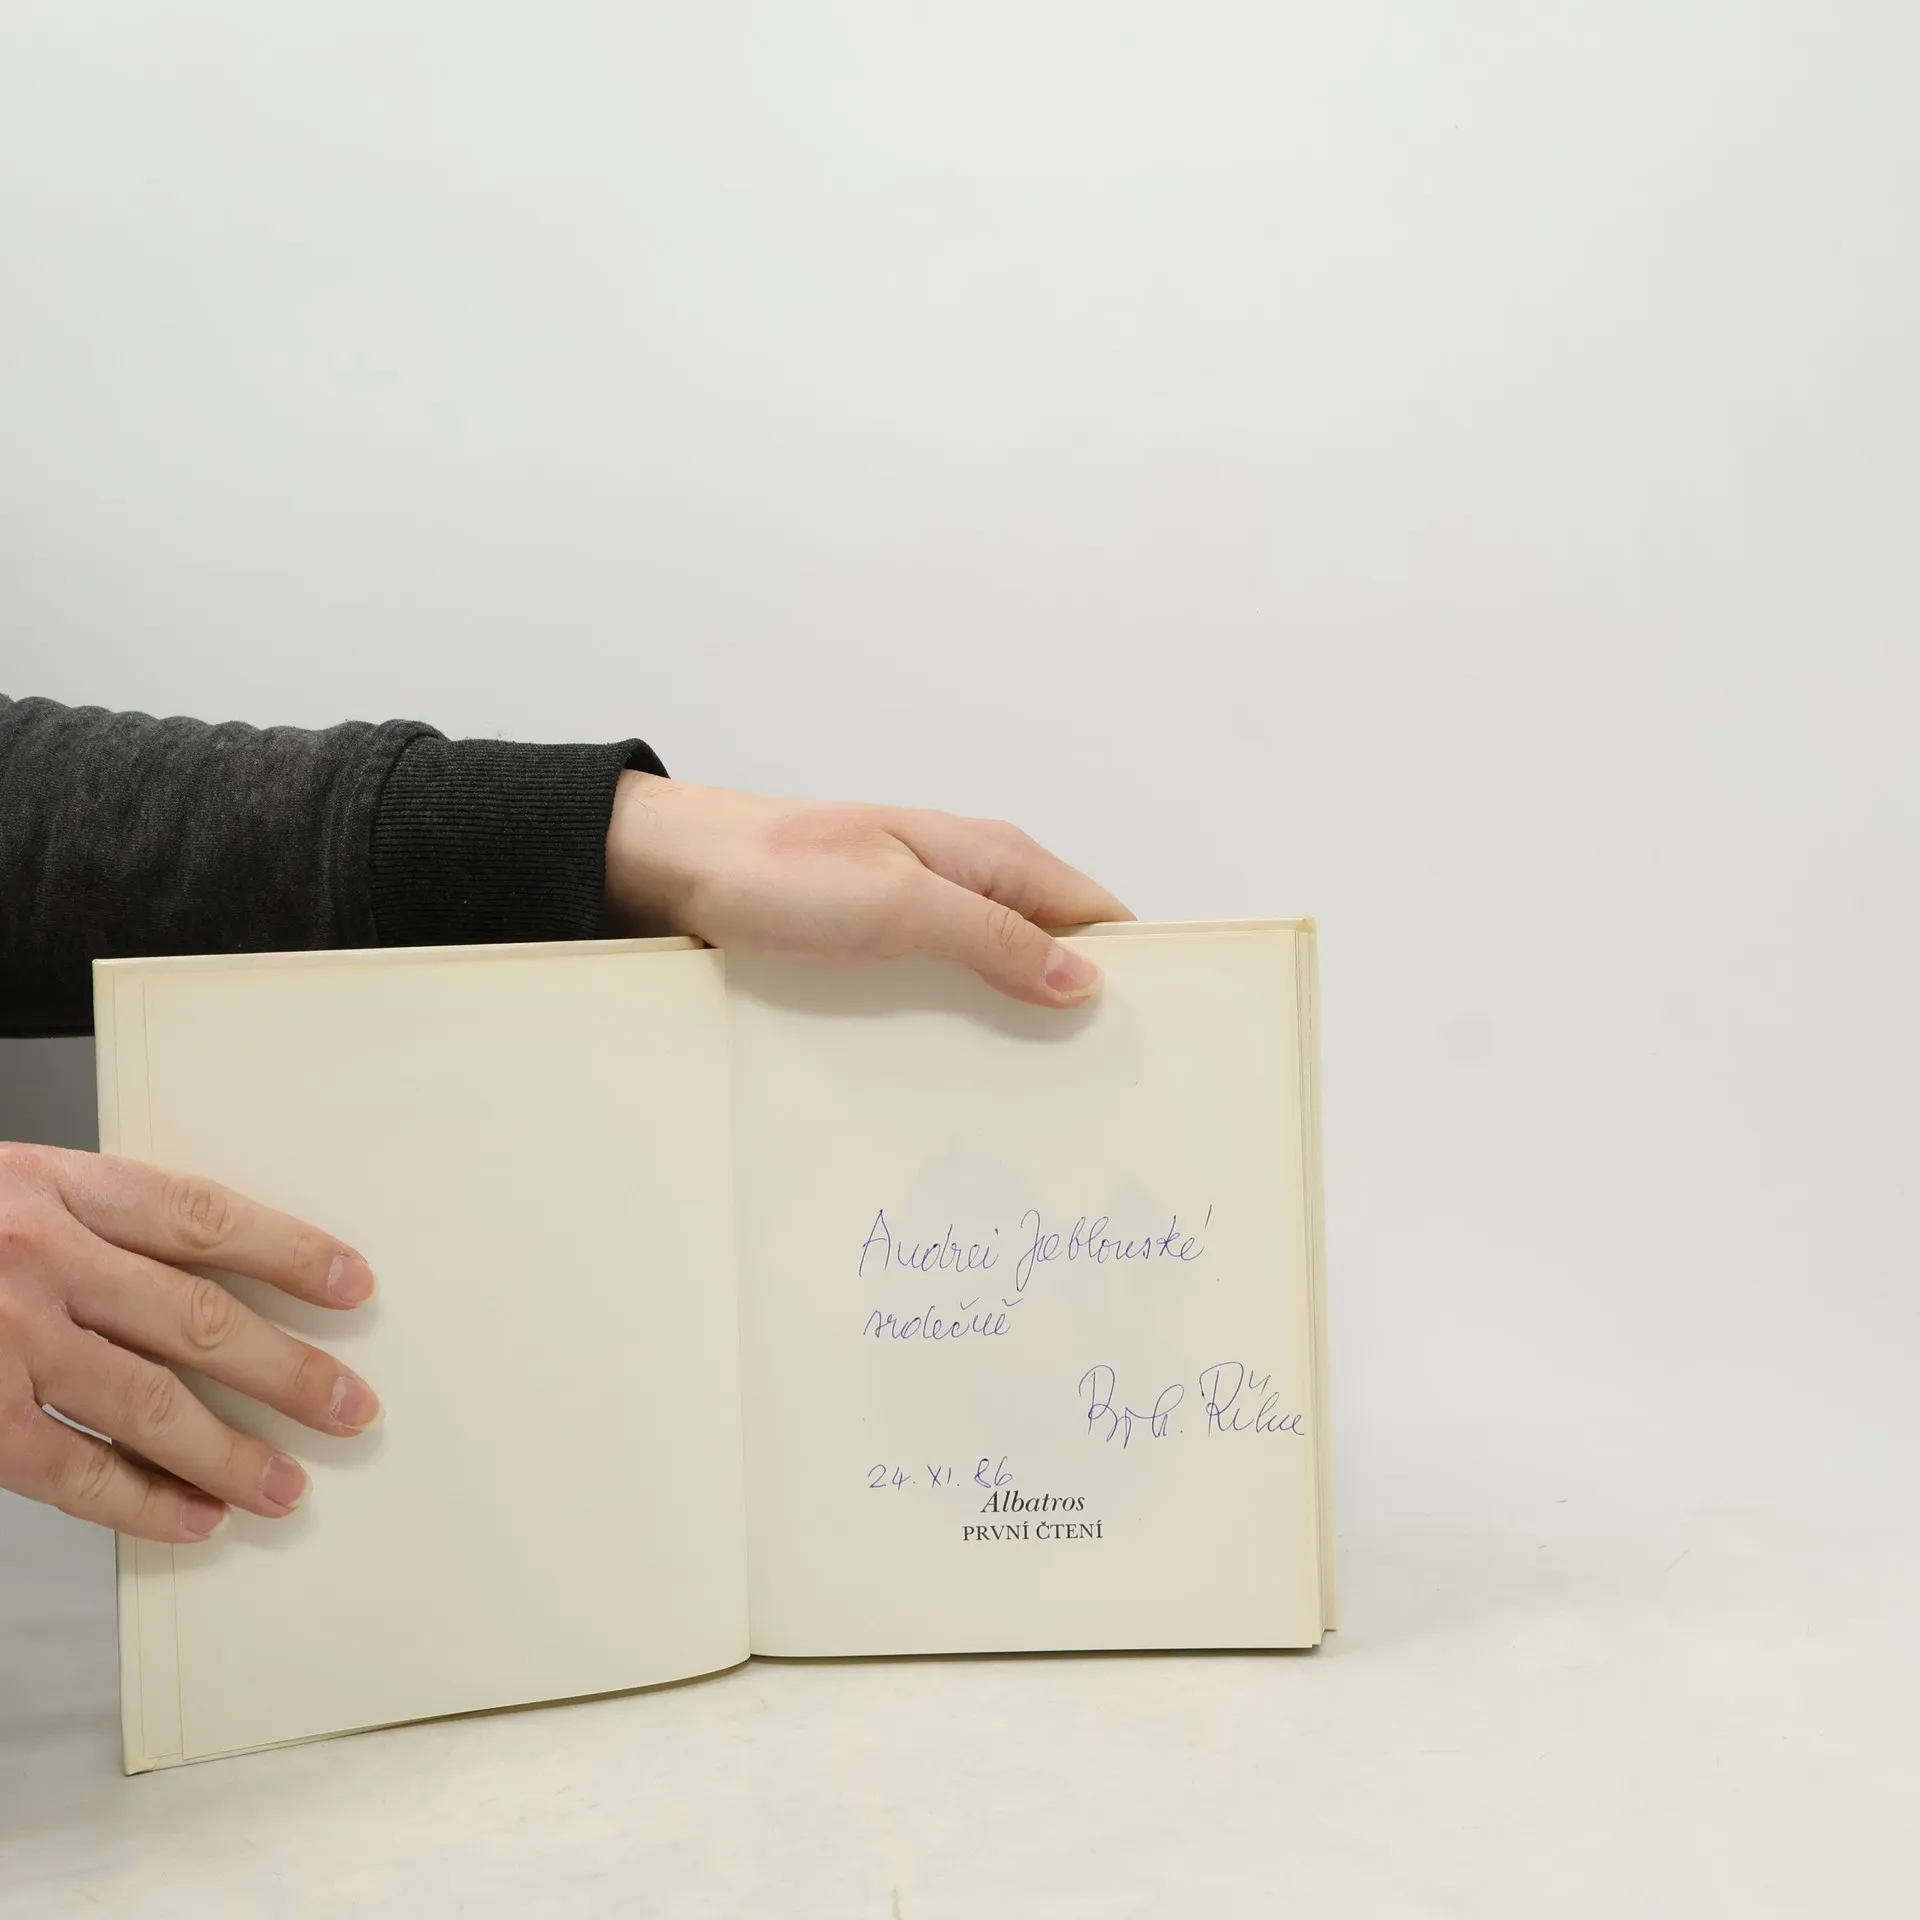 Andrei Jablouské
srdečně
Boh. Říha
24. XI. 86
Albatros
PRVNÍ ČTENÍ